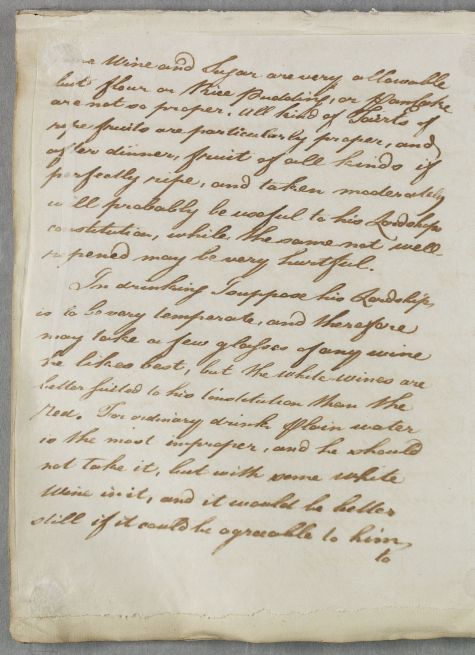 Wine and Sugar are very allowable
but flour or Rice Pudding, or Pancake
are not so proper. All kind of Tairts of
ripe fruits are particularly proper, and
after dinner, fruit of all kinds if
perfectly ripe, and taken moderately
will probably be useful to his Lordships
constitution, while the same not well-
ripened may be very hurtful.
In drinking I suppose his Lordship,
is to be very temperate, and therefore
may take a few glasses of any wine
he likes best, but the white wines are
better suited to his Constitution than the
Red. For ordinary drink Plain water
is the most improper, and he should
not take it, but with some white
Wine in it, and it would be better
still if it could be agreeable to him,
to